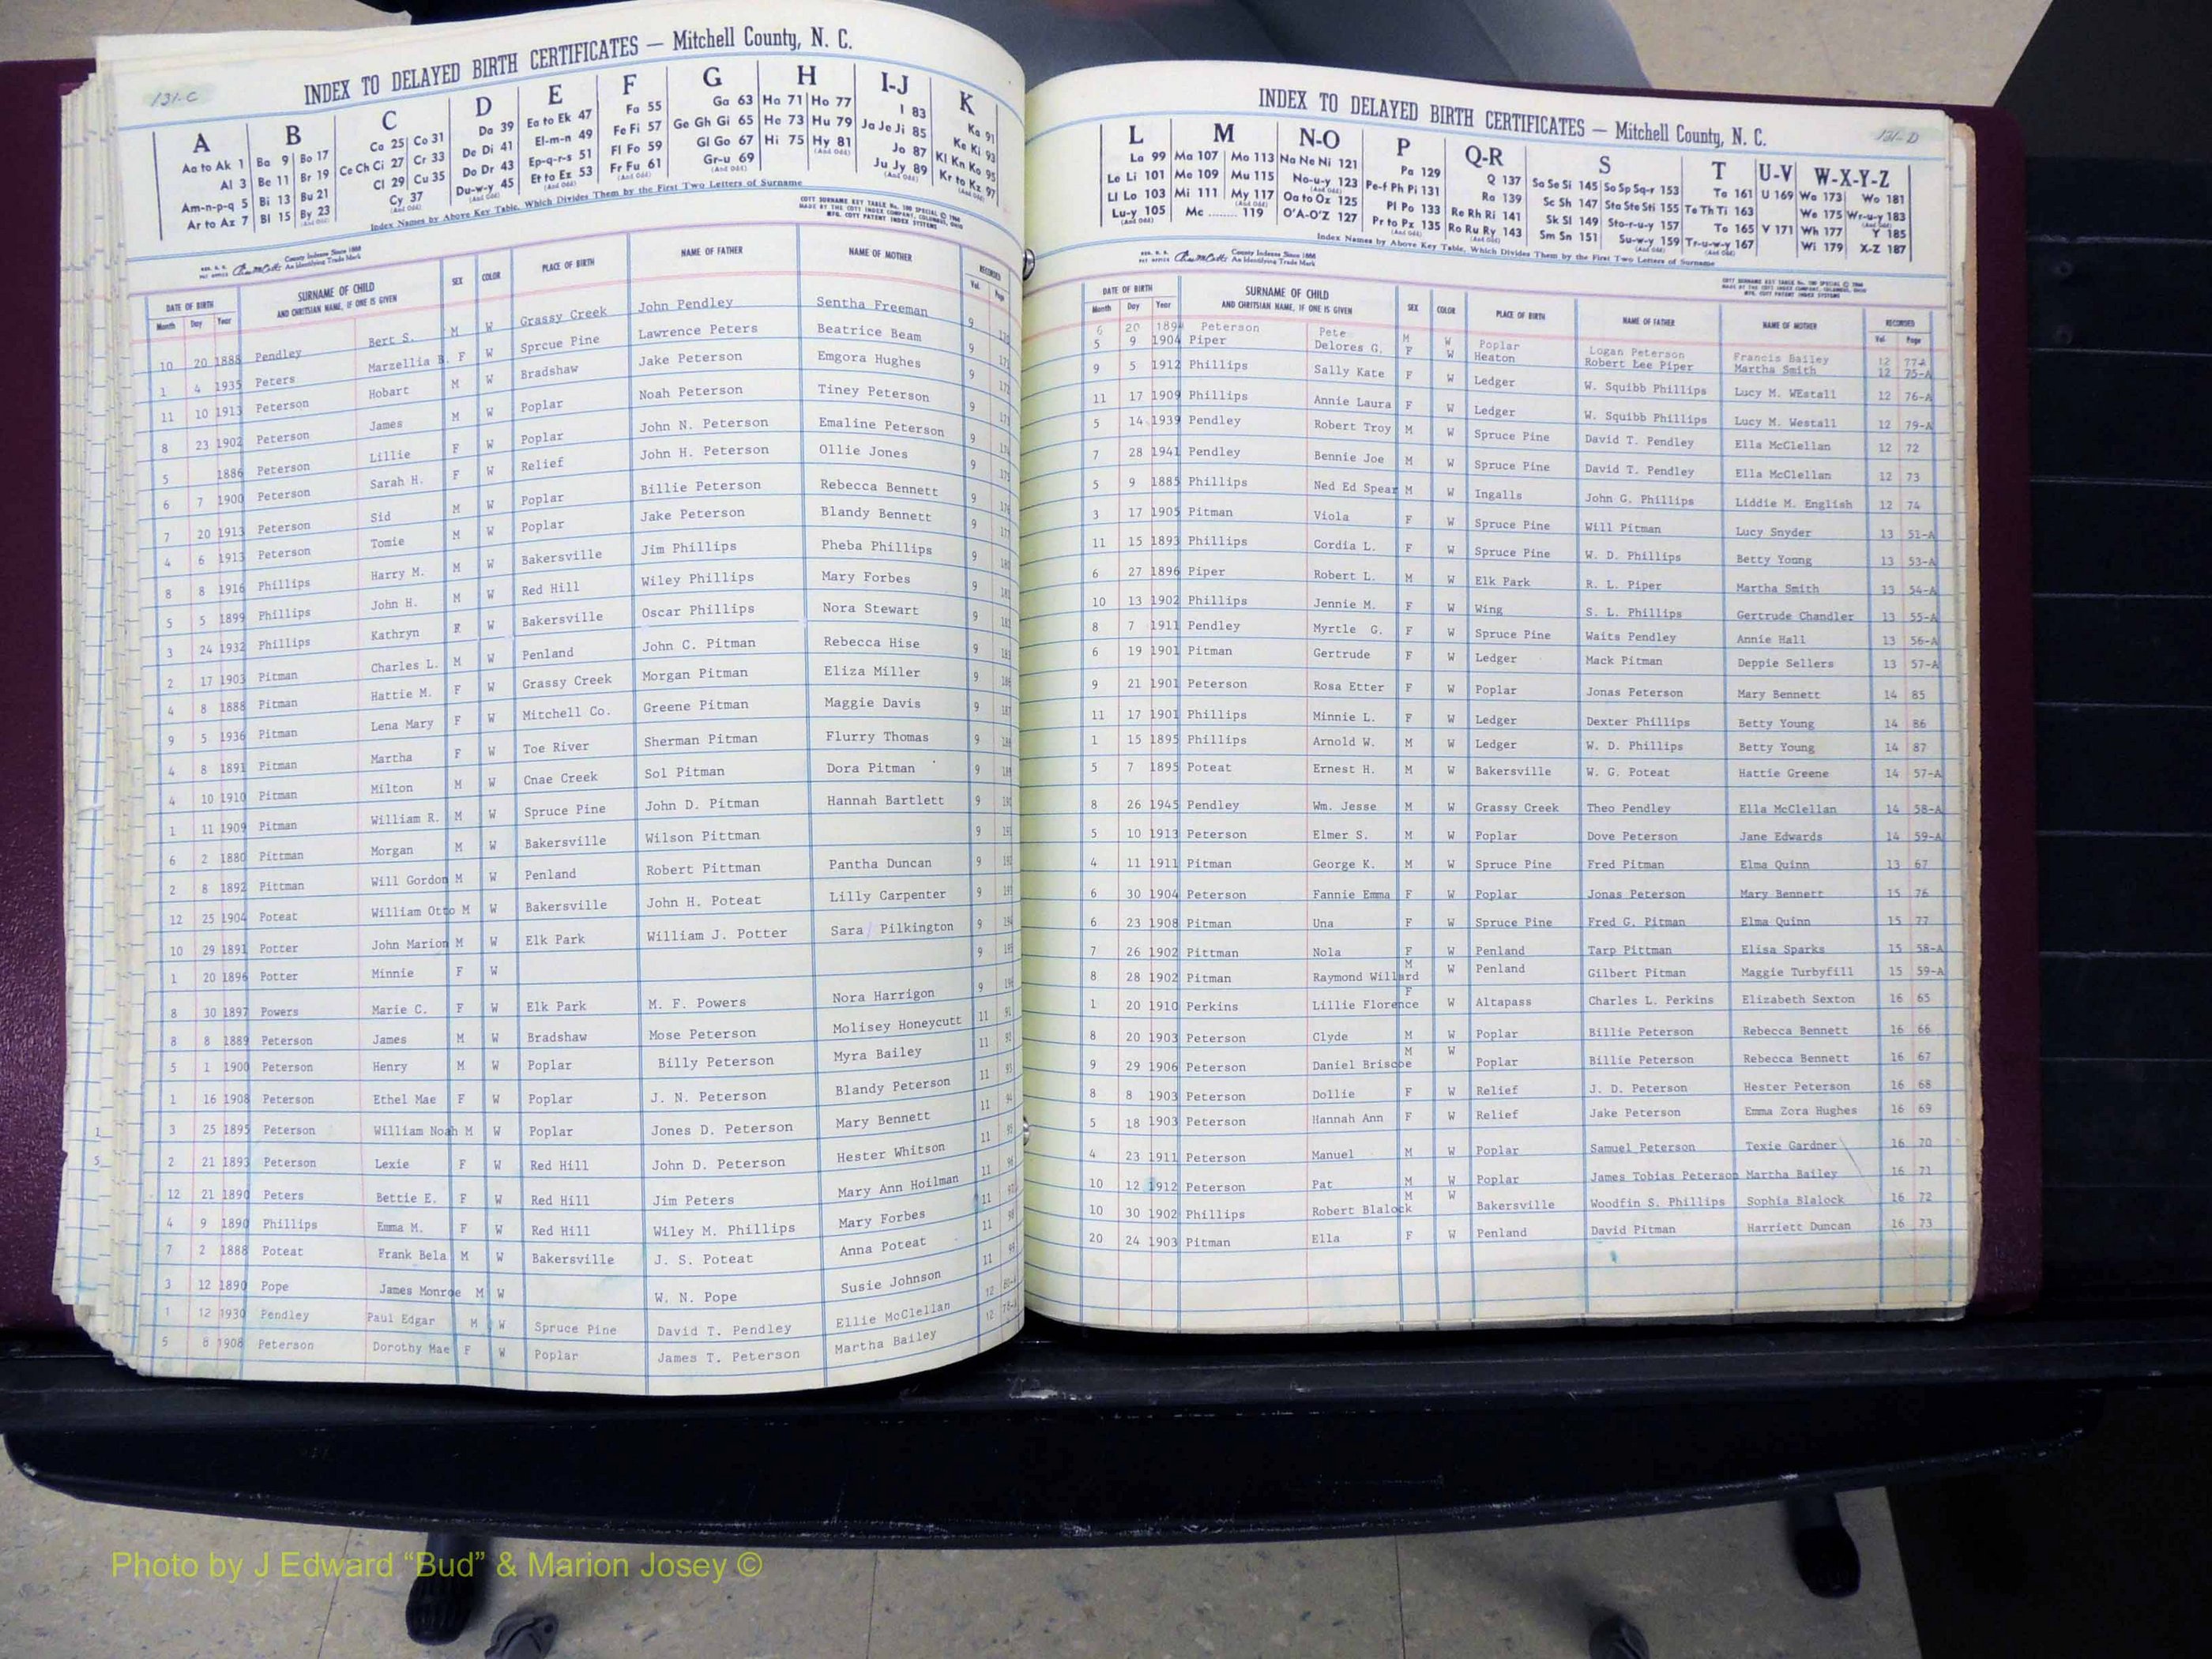 131-C
INDEX TO DELAYED BIRTH CERTIFICATES — Mitchell County, N. C.
A B C D E F G H I-J K
Aa to Ak 1 Ba 9 Bo 17 Ca 25 Co 31 Da 39 Ea to Ek 47 Fa 55 Ga 63 Ha 71 Ho 77 I 83 Ka 91
Al 3 Be 11 Br 19 Ce Ch Ci 27 Cr 33 De Di 41 El-m-n 49 Fe Fi 57 Ge Gh Gi 65 He 73 Hu 79 Ja Je Ji 85 Ke Ki 93
Am-n-p-q 5 Bi 13 Bu 21 Cl 29 Cu 35 Do Dr 43 Ep-q-r-s 51 Fl Fo 59 Gl Go 67 Hi 75 Hy 81 Jo 87 Kl Kn Ko 95
Ar to Az 7 Bl 15 By 23 Cy 37 Du-w-y 45 Et to Ez 53 Fr Fu 61 Gr-u 69 Ju Jy 89 Kr to Kz 97
Index Names by Above Key Table, Which Divides Them by the First Two Letters of Surname
County Indexes Since 1888
An Identifying Trade Mark
COTT SURNAME KEY TABLE No. 100 SPECIAL
MADE BY THE COTT INDEX COMPANY, COLUMBUS, OHIO
MFG. COTT PATENT INDEX SYSTEMS
DATE OF BIRTH SURNAME OF CHILD SEX COLOR PLACE OF BIRTH NAME OF FATHER NAME OF MOTHER RECORDED
Month Day Year AND CHRITSIAN NAME, IF ONE IS GIVEN Vol. Page
10 20 1888 Pendley Bert S. M W Grassy Creek John Pendley Sentha Freeman 9
1 4 1935 Peters Marzellia B. F W Sprcue Pine Lawrence Peters Beatrice Beam 9
11 10 1913 Peterson Hobart M W Bradshaw Jake Peterson Emgora Hughes 9
8 23 1902 Peterson James M W Poplar Noah Peterson Tiney Peterson 9
5 1886 Peterson Lillie F W Poplar John N. Peterson Emaline Peterson 9
6 7 1900 Peterson Sarah H. F W Relief John H. Peterson Ollie Jones 9
7 20 1913 Peterson Sid M W Poplar Billie Peterson Rebecca Bennett 9
4 6 1913 Peterson Tomie M W Poplar Jake Peterson Blandy Bennett 9
8 8 1916 Phillips Harry M. M W Bakersville Jim Phillips Pheba Phillips 9
5 5 1899 Phillips John H. M W Red Hill Wiley Phillips Mary Forbes 9
3 24 1932 Phillips Kathryn F W Bakersville Oscar Phillips Nora Stewart 9
2 17 1903 Pitman Charles L. M W Penland John C. Pitman Rebecca Hise 9
4 8 1888 Pitman Hattie M. F W Grassy Creek Morgan Pitman Eliza Miller 9
9 5 1936 Pitman Lena Mary F W Mitchell Co. Greene Pitman Maggie Davis 9
4 8 1891 Pitman Martha F W Toe River Sherman Pitman Flurry Thomas 9
4 10 1910 Pitman Milton M W Cnae Creek Sol Pitman Dora Pitman 9
1 11 1909 Pitman William R. M W Spruce Pine John D. Pitman Hannah Bartlett 9
6 2 1880 Pittman Morgan M W Bakersville Wilson Pittman 9
2 8 1892 Pittman Will Gordon M W Penland Robert Pittman Pantha Duncan 9
12 25 1904 Poteat William Otto M W Bakersville John H. Poteat Lilly Carpenter 9
10 29 1891 Potter John Marion M W Elk Park William J. Potter Sara Pilkington 9
1 20 1896 Potter Minnie F W 9
8 30 1897 Powers Marie C. F W Elk Park M. F. Powers Nora Harrigon 9
8 8 1889 Peterson James M W Bradshaw Mose Peterson Molisey Honeycutt 11 91
5 1 1900 Peterson Henry M W Poplar Billy Peterson Myra Bailey 11 92
1 16 1908 Peterson Ethel Mae F W Poplar J. N. Peterson Blandy Peterson 11 93
3 25 1895 Peterson William Noah M W Poplar Jones D. Peterson Mary Bennett 11 94
2 21 1893 Peterson Lexie F W Red Hill John D. Peterson Hester Whitson 11 95
12 21 1890 Peters Bettie E. F W Red Hill Jim Peters Mary Ann Hoilman 11 96
4 9 1890 Phillips Emma M. F W Red Hill Wiley M. Phillips Mary Forbes 11
7 2 1888 Poteat Frank Bela M W Bakersville J. S. Poteat Anna Poteat 11 98
3 12 1890 Pope James Monroe M W W. N. Pope Susie Johnson 11 99
1 12 1930 Pendley Paul Edgar M W Spruce Pine David T. Pendley Ellie McClellan 12 80-A
5 8 1908 Peterson Dorothy Mae F W Poplar James T. Peterson Martha Bailey 12 78-A
131-D
INDEX TO DELAYED BIRTH CERTIFICATES — Mitchell County, N. C.
L M N-O P Q-R S T U-V W-X-Y-Z
La 99 Ma 107 Mo 113 Na Ne Ni 121 Pa 129 Q 137 Sa Se Si 145 So Sp Sq-r 153 Ta 161 U 169 Wa 173 Wo 181
Le Li 101 Me 109 Mu 115 No-u-y 123 Pe-f Ph Pi 131 Ra 139 Sc Sh 147 Sta Ste Sti 155 Te Th Ti 163 We 175 Wr-u-y 183
Ll Lo 103 Mi 111 My 117 Oa to Oz 125 Pl Po 133 Re Rh Ri 141 Sk Sl 149 Sto-r-u-y 157 To 165 V 171 Wh 177 Y 185
Lu-y 105 Mc 119 O'A-O'Z 127 Pr to Pz 135 Ro Ru Ry 143 Sm Sn 151 Su-w-y 159 Tr-u-w-y 167 Wi 179 X-Z 187
Index Names by Above Key Table, Which Divides Them by the First Two Letters of Surname
County Indexes Since 1888
An Identifying Trade Mark
COTT SURNAME KEY TABLE No. 100 SPECIAL
MADE BY THE COTT INDEX COMPANY, COLUMBUS, OHIO
MFG. COTT PATENT INDEX SYSTEMS
DATE OF BIRTH SURNAME OF CHILD SEX COLOR PLACE OF BIRTH NAME OF FATHER NAME OF MOTHER RECORDED
Month Day Year AND CHRITSIAN NAME, IF ONE IS GIVEN Vol. Page
6 20 1894 Peterson Pete M W Poplar Logan Peterson Francis Bailey 12 77-A
5 9 1904 Piper Delores G. F W Heaton Robert Lee Piper Martha Smith 12 75-A
9 5 1912 Phillips Sally Kate F W Ledger W. Squibb Phillips Lucy M. WEstall 12 76-A
11 17 1909 Phillips Annie Laura F W Ledger W. Squibb Phillips Lucy M. Westall 12 79-A
5 14 1939 Pendley Robert Troy M W Spruce Pine David T. Pendley Ella McClellan 12 72
7 28 1941 Pendley Bennie Joe M W Spruce Pine David T. Pendley Ella McClellan 12 73
5 9 1885 Phillips Ned Ed Spear M W Ingalls John G. Phillips Liddie M. English 12 74
3 17 1905 Pitman Viola F W Spruce Pine Will Pitman Lucy Snyder 13 51-A
11 15 1893 Phillips Cordia L. F W Spruce Pine W. D. Phillips Betty Young 13 53-A
6 27 1896 Piper Robert L. M W Elk Park R. L. Piper Martha Smith 13 54-A
10 13 1902 Phillips Jennie M. F W Wing S. L. Phillips Gertrude Chandler 13 55-A
8 7 1911 Pendley Myrtle G. F W Spruce Pine Waits Pendley Annie Hall 13 56-A
6 19 1901 Pitman Gertrude F W Ledger Mack Pitman Deppie Sellers 13 57-A
9 21 1901 Peterson Rosa Etter F W Poplar Jonas Peterson Mary Bennett 14 85
11 17 1901 Phillips Minnie L. F W Ledger Dexter Phillips Betty Young 14 86
1 15 1895 Phillips Arnold W. M W Ledger W. D. Phillips Betty Young 14 87
5 7 1895 Poteat Ernest H. M W Bakersville W. G. Poteat Hattie Greene 14 57-A
8 26 1945 Pendley Wm. Jesse M W Grassy Creek Theo Pendley Ella McClellan 14 58-A
5 10 1913 Peterson Elmer S. M W Poplar Dove Peterson Jane Edwards 14 59-A
4 11 1911 Pitman George K. M W Spruce Pine Fred Pitman Elma Quinn 13 67
6 30 1904 Peterson Fannie Emma F W Poplar Jonas Peterson Mary Bennett 15 76
6 23 1908 Pitman Una F W Spruce Pine Fred G. Pitman Elma Quinn 15 77
7 26 1902 Pittman Nola F W Penland Tarp Pittman Elisa Sparks 15 58-A
8 28 1902 Pitman Raymond Willard M W Penland Gilbert Pitman Maggie Turbyfill 15 59-A
1 20 1910 Perkins Lillie Florence F W Altapass Charles L. Perkins Elizabeth Sexton 16 65
8 20 1903 Peterson Clyde M W Poplar Billie Peterson Rebecca Bennett 16 66
9 29 1906 Peterson Daniel Briscoe M W Poplar Billie Peterson Rebecca Bennett 16 67
8 8 1903 Peterson Dollie F W Relief J. D. Peterson Hester Peterson 16 68
5 18 1903 Peterson Hannah Ann F W Relief Jake Peterson Emma Zora Hughes 16 69
4 23 1911 Peterson Manuel M W Poplar Samuel Peterson Texie Gardner 16 70
10 12 1912 Peterson Pat M W Poplar James Tobias Peterson Martha Bailey 16 71
10 30 1902 Phillips Robert Blalock M W Bakersville Woodfin S. Phillips Sophia Blalock 16 72
20 24 1903 Pitman Ella F W Penland David Pitman Harriett Duncan 16 73
Photo by J Edward “Bud” & Marion Josey ©